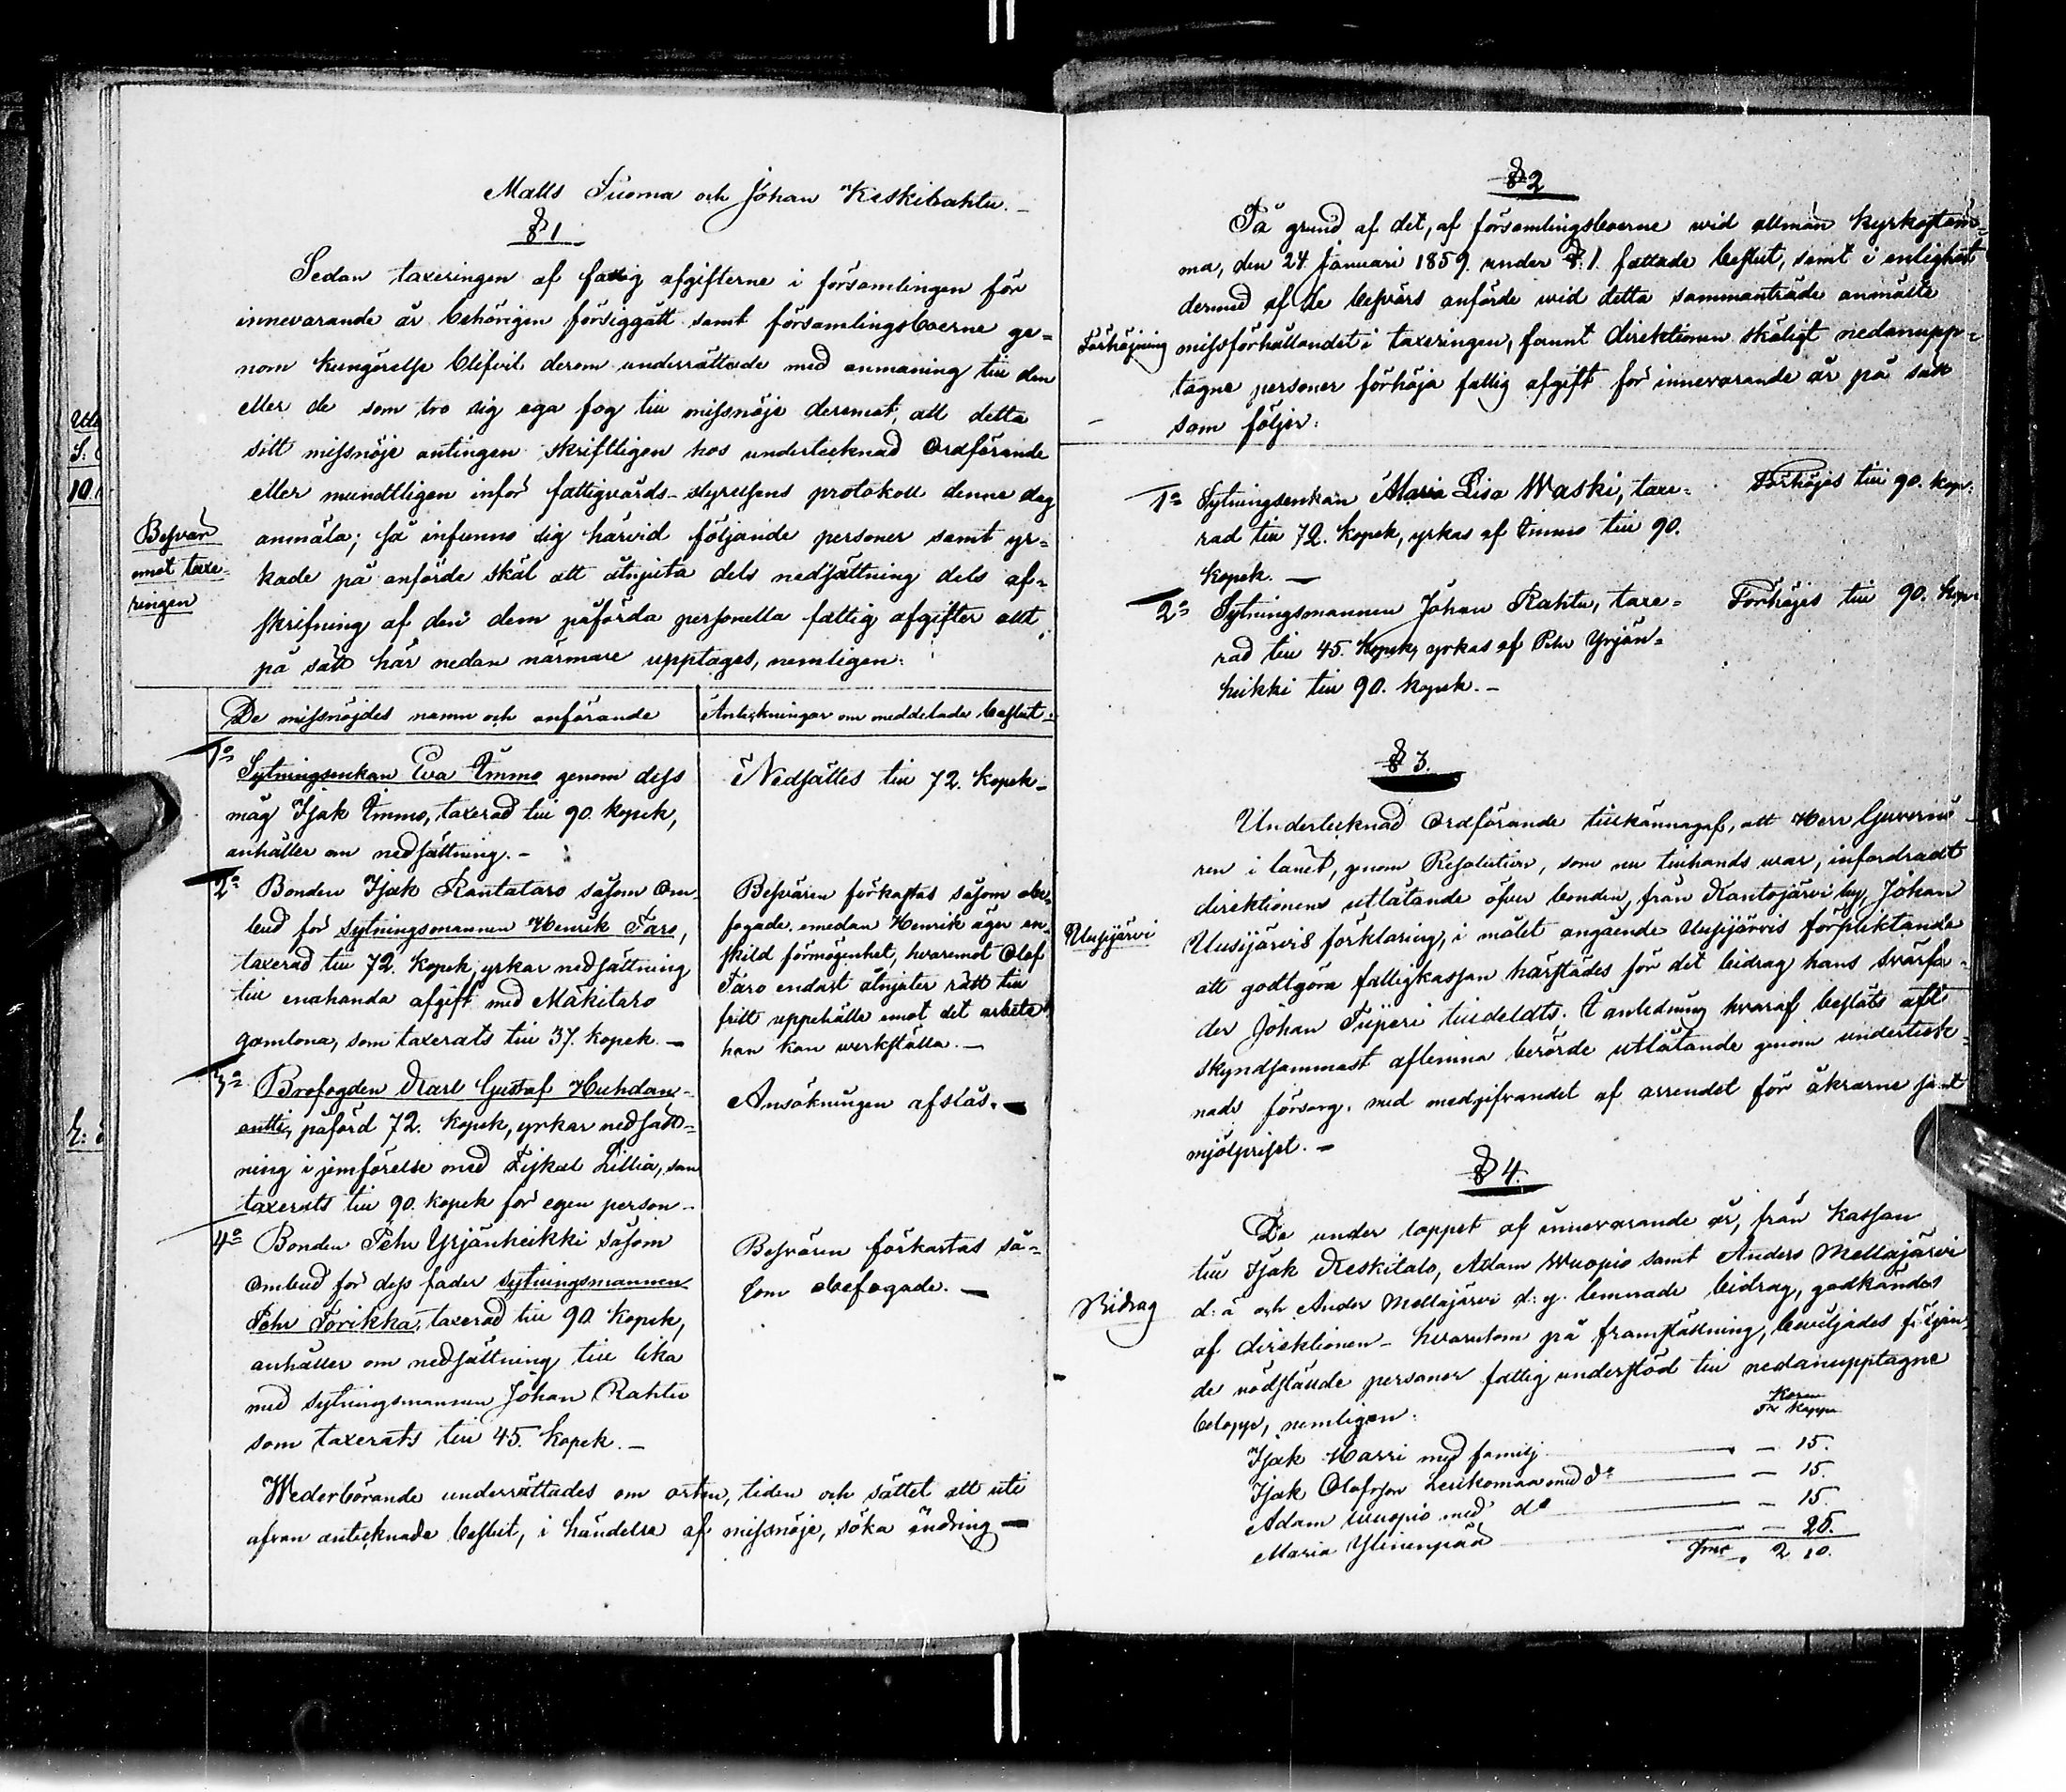 Matts Suoma och Johan Keskirahtu.
§ 1
Sedan taxeringen af fattig afgifterne i församlingen för
innevarande år behörigen försiggått samt församlingsboerne ge=
nom kungörelse blifvit derom underrättade med anmaning till den
eller de som tro sig ega fog till missnöje deremot, att detta
sitt missnöje antingen skriftligen hos undertecknad Ordförande
eller mundtligen inför fattigvårds-styrelsens protokoll denne dag
Besvär
emot taxe-
ringen
anmäla; så infunno sig härvid följande personer samt yr=
kade på anförda skäl att åtnjuta dels nedsättning dels af=
skrifning af den dem påförda personella fattig afgifter allt
på sätt här nedan närmare upptages, nemligen:
De missnöjdes namn och anförande
Anteckningar om meddelade beslut.
1o
Sytningsenkan Eva Ommo genom dess
måg Isak Ommo, taxerad till 90 kopek,
anhåller om nedsättning.-
Nedsättes till 72. kopek-
2o Bonden Isak Kantataro såsom Om-
bud för sytningsmannen Henrik Taro,
taxerad till 72. kopek, yrkar nedsättning
till enahanda afgift med Mäkitaro
gamlona, som taxerats till 37. kopek. -
Besvären förkastas såsom obe-
fogade. emedan Henrik äger en-
skild förmögenhet, hvaremot Olof
Taro endast åtnjuter rätt till
fritt uppehälle emot det arbete
han kan werkställa. -
3o Brofogden Karl Gustaf Huhdan-
antti, påförd 72. kopek, yrkar nedsätt=
ning i jemförelse med Zijkel Lillia, som
taxerats till 90. kopek för egen person-
Ansökningen afslås. -
4o Bonden Pehr Yrjänheikki såsom
Ombud för dess fader sytningsmannen
Pehr Torikka, taxerad till 90 kopek,
anhåller om nedsättning till lika
med sytningsmannen Johan Rahtu
som taxerats till 45. kopek. -
Besvären förkastas så=
som obefogade. -
Wederbörande underrättades om orten, tiden och sättet att uti
afvan antecknade beslut, i händelse af missnöje, söka ändring -
§ 2
På grund af det, af församlingsboerne wid allmän kyrkostäm=
ma, den 24 Januari 1859. under §. 1. fattade beslut, samt i enlighet
dermed af de besvärs anförde wid detta sammanträde anmälte
Förhöjning
missförhållandet i taxeringen, fannt direktionen skäligt nedanupp=
tagne personer förhöja fattig afgift för innevarande år på sätt
som följer:
1o Sytningsenkan Maria Lisa Waski, taxe=
rad till 72. kopek, yrkas af Ommo till 90.
kopek. -
Förhöjes till 90. kop:
2o Sytningsmannen Johan Rahtu, taxe=
rad till 45. kopek, yrkas af Pehr Yrjän=
heikki till 90. kopek. -
Förhöjes till 90. kop:
§ 3.
Undertecknad Ordförande tillkännagaf, att Herr Guvernö-
ren i länet, genom Resolution, som nu tillhands war, infordradt
direktionens utlåtande öfver bonden, från Kantojärvi by, Johan
Uusijärvi
Uusijärvis förklaring, i målet angående Uusijärvis förpliktande
att godtgöra fattigkassan härstädes för det bidrag hans svärfa-
der Johan Tuiperi tilldeldts. I anledning hvaraf beslöts att
skyndsammast aflemna berörde utlåtande genom underteck=
nads försorg. med medgifvandet af arrendet för åkrarne samt
mjölpriset. -
§ 4.
De under loppet af innevarande år, från kassan
till Isak Keskitalo, Adam Wuopio samt Anders Mellajärvi
Bidrag
d:ä och Ander Mellajärvi d:y. lemnade bidrag, godkändes
af direktionen - hvarutom på framställning, beviljades följan-
de nödstälde personer fattig understöd till nedanupptagne
belopp, nemligen:
Korn
Tnr Kappar
Isak Harri med familj - 15.
Isak Olofsson Leukomaa med do - 15.
Adam Wuopio med do - 15.
Maria Ylinenpää - 25.
Sme. 2 10.